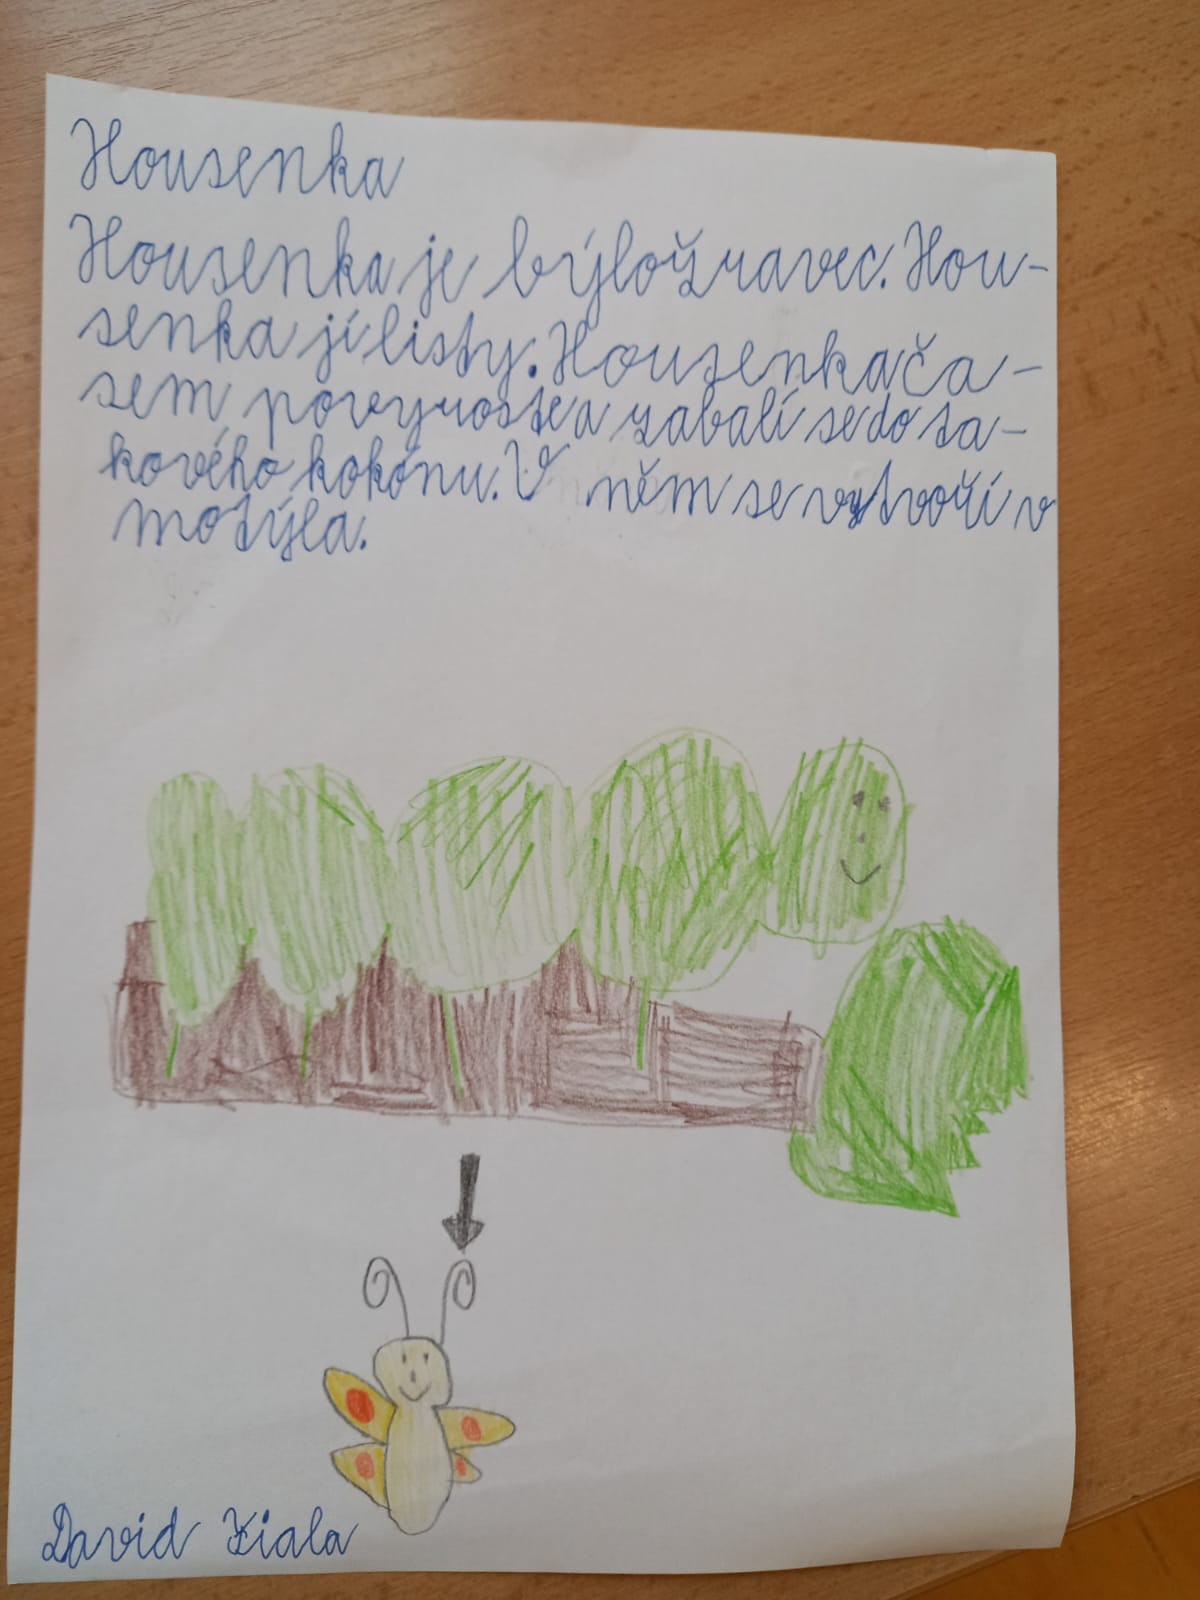 Housenka
Housenka je býložravec. Hou-
senka jí listy. Housenka ča-
sem povyroste a zabalí se do ta-
kového kokónu. V něm se vytvoří v
motýla.
David